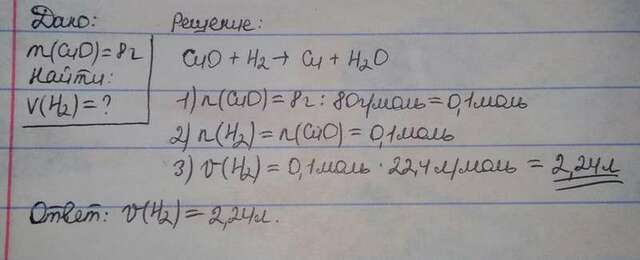 Дано:
m(CuO)=8г
Найти:
V(H₂)=?
Решение:
CuO + H₂ → Cu + H₂O
1) n(CuO) = 8г : 80г/моль = 0,1моль
2) n(H₂) = n(CuO) = 0,1моль
3) V(H₂) = 0,1моль · 22,4л/моль = 2,24л
Ответ: V(H₂) = 2,24л.